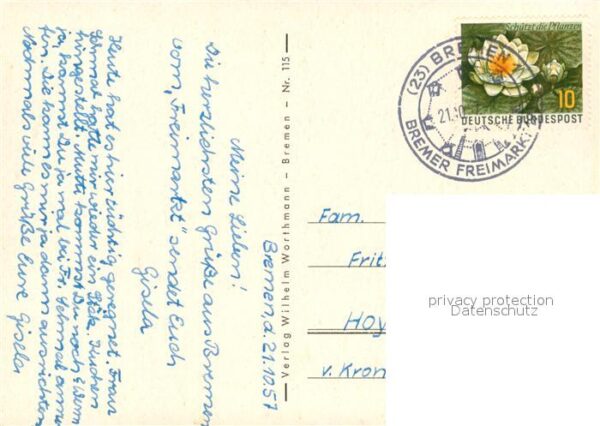 Bremen, d. 21.10.57
Meine Lieben!
Die herzlichsten Grüße aus Bremen
vom "Freimarkt" sendet Euch
Gisela
Heute hat es hier tüchtig geregnet. Frau
hatte mir wieder ein Stck. Kuchen
hingestellt. Mutti kommst Du noch
ja, kannst Du ja mal bei Fr.
für. Die kann es mir ja dann ausrichten
Nochmals viele Grüße Eure Gisela
Verlag Wilhelm Worthmann – Bremen – Nr. 115
Schützt die Pflanzen
10
DEUTSCHE BUNDESPOST
(23) BREMEN
21.10
BREMER FREIMARKT
Fam.
Frit
Hoy
v. Kron
privacy protection
Datenschutz